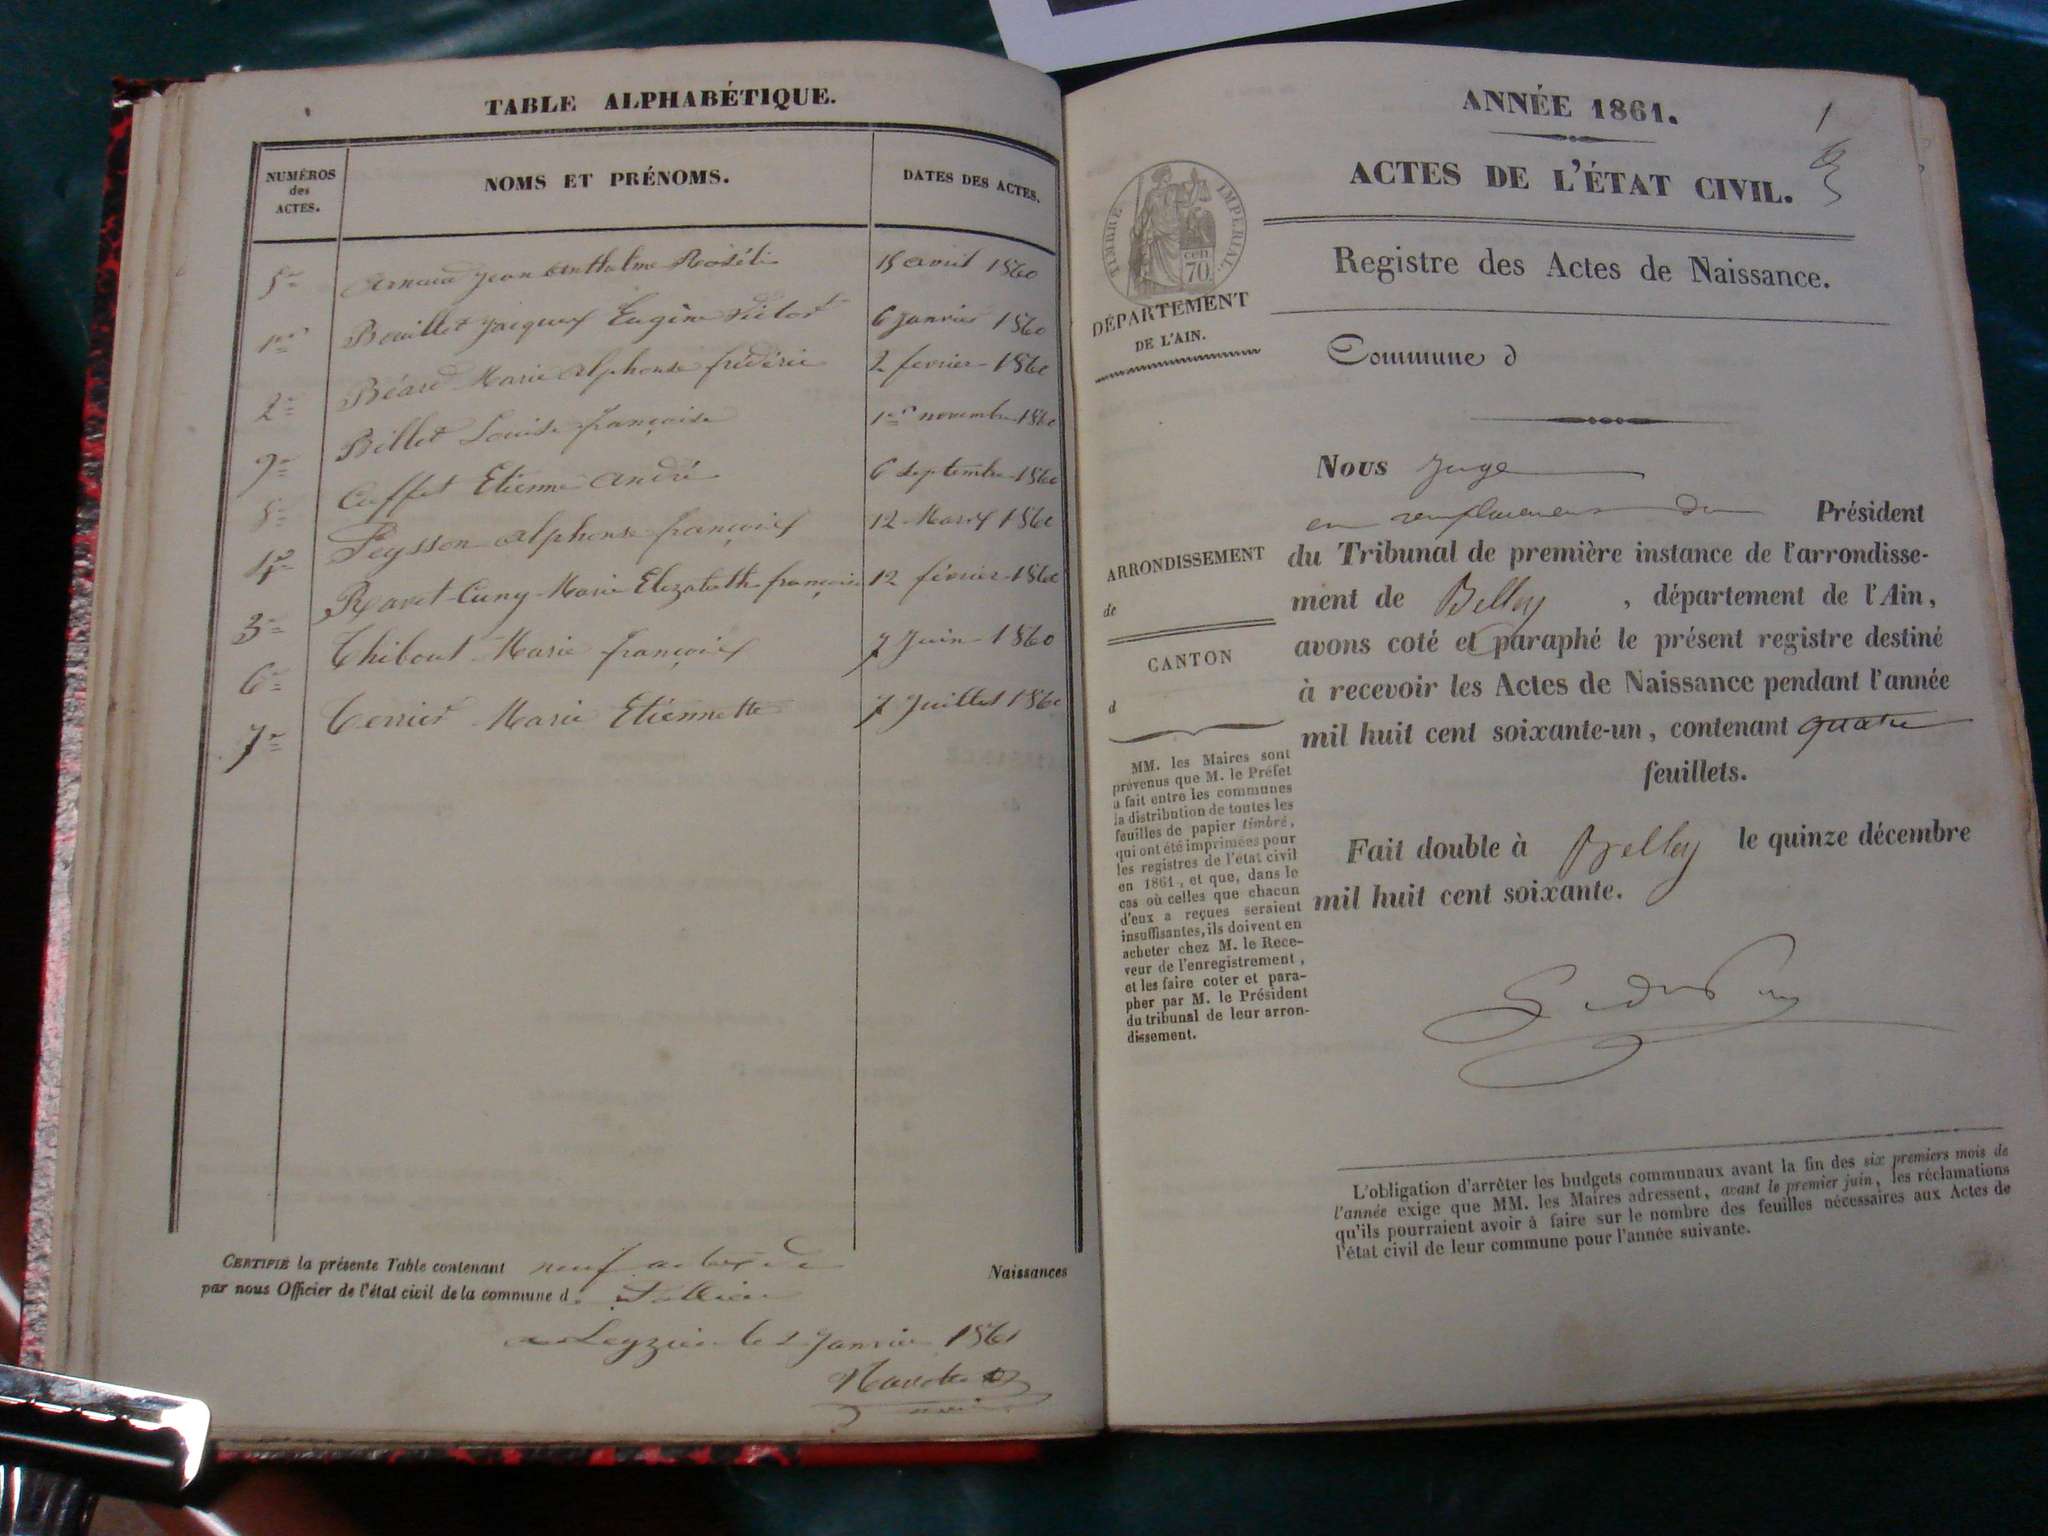 TABLE ALPHABÉTIQUE.
NUMÉROS des ACTES.
NOMS ET PRÉNOMS.
DATES DES ACTES.
5e Arnaud Jean Anthelme 15 avril 1860
1er Bouillet Jacques Eugène Victor 6 Janvier 1860
2e Béard Marie Alphonse frédéric 2 février 1860
9e Billet Louise françoise 1er novembre 1860
8e Caffet Etienne André 6 septembre 1860
4e Peysson Alphonse françois 12 Mars 1860
3e Ravet-Cuny Marie Elizabeth françoise 12 février 1860
6e Thibout Marie françois 7 Juin 1860
7e Terrier Marie Etiennette 7 Juillet 1860
CERTIFIÉ la présente Table contenant neuf actes de Naissances
par nous Officier de l'état civil de la commune d
le 2 Janvier 1861
ANNÉE 1861.
1
ACTES DE L'ÉTAT CIVIL.
TIMBRE IMPÉRIAL
cen
70
Registre des Actes de Naissance.
DÉPARTEMENT
DE L'AIN.
Commune d
Nous Juge
en remplacement du Président
du Tribunal de première instance de l'arrondisse-
ment de Belley, département de l'Ain,
avons coté et paraphé le présent registre destiné
à recevoir les Actes de Naissance pendant l'année
mil huit cent soixante-un, contenant quatre
feuillets.
Fait double à Belley le quinze décembre
mil huit cent soixante.
ARRONDISSEMENT
de
CANTON
d
MM. les Maires sont
prévenus que M. le Préfet
a fait entre les communes
la distribution de toutes les
feuilles de papier timbré,
qui ont été imprimées pour
les registres de l'état civil
en 1861, et que, dans le
cas où celles que chacun
d'eux a reçues seraient
insuffisantes, ils doivent en
acheter chez M. le Rece-
veur de l'enregistrement,
et les faire coter et para-
pher par M. le Président
du tribunal de leur arron-
dissement.
L'obligation d'arrêter les budgets communaux avant la fin des six premiers mois de
l'année exige que MM. les Maires adressent, avant le premier juin, les réclamations
qu'ils pourraient avoir à faire sur le nombre des feuilles nécessaires aux Actes de
l'état civil de leur commune pour l'année suivante.